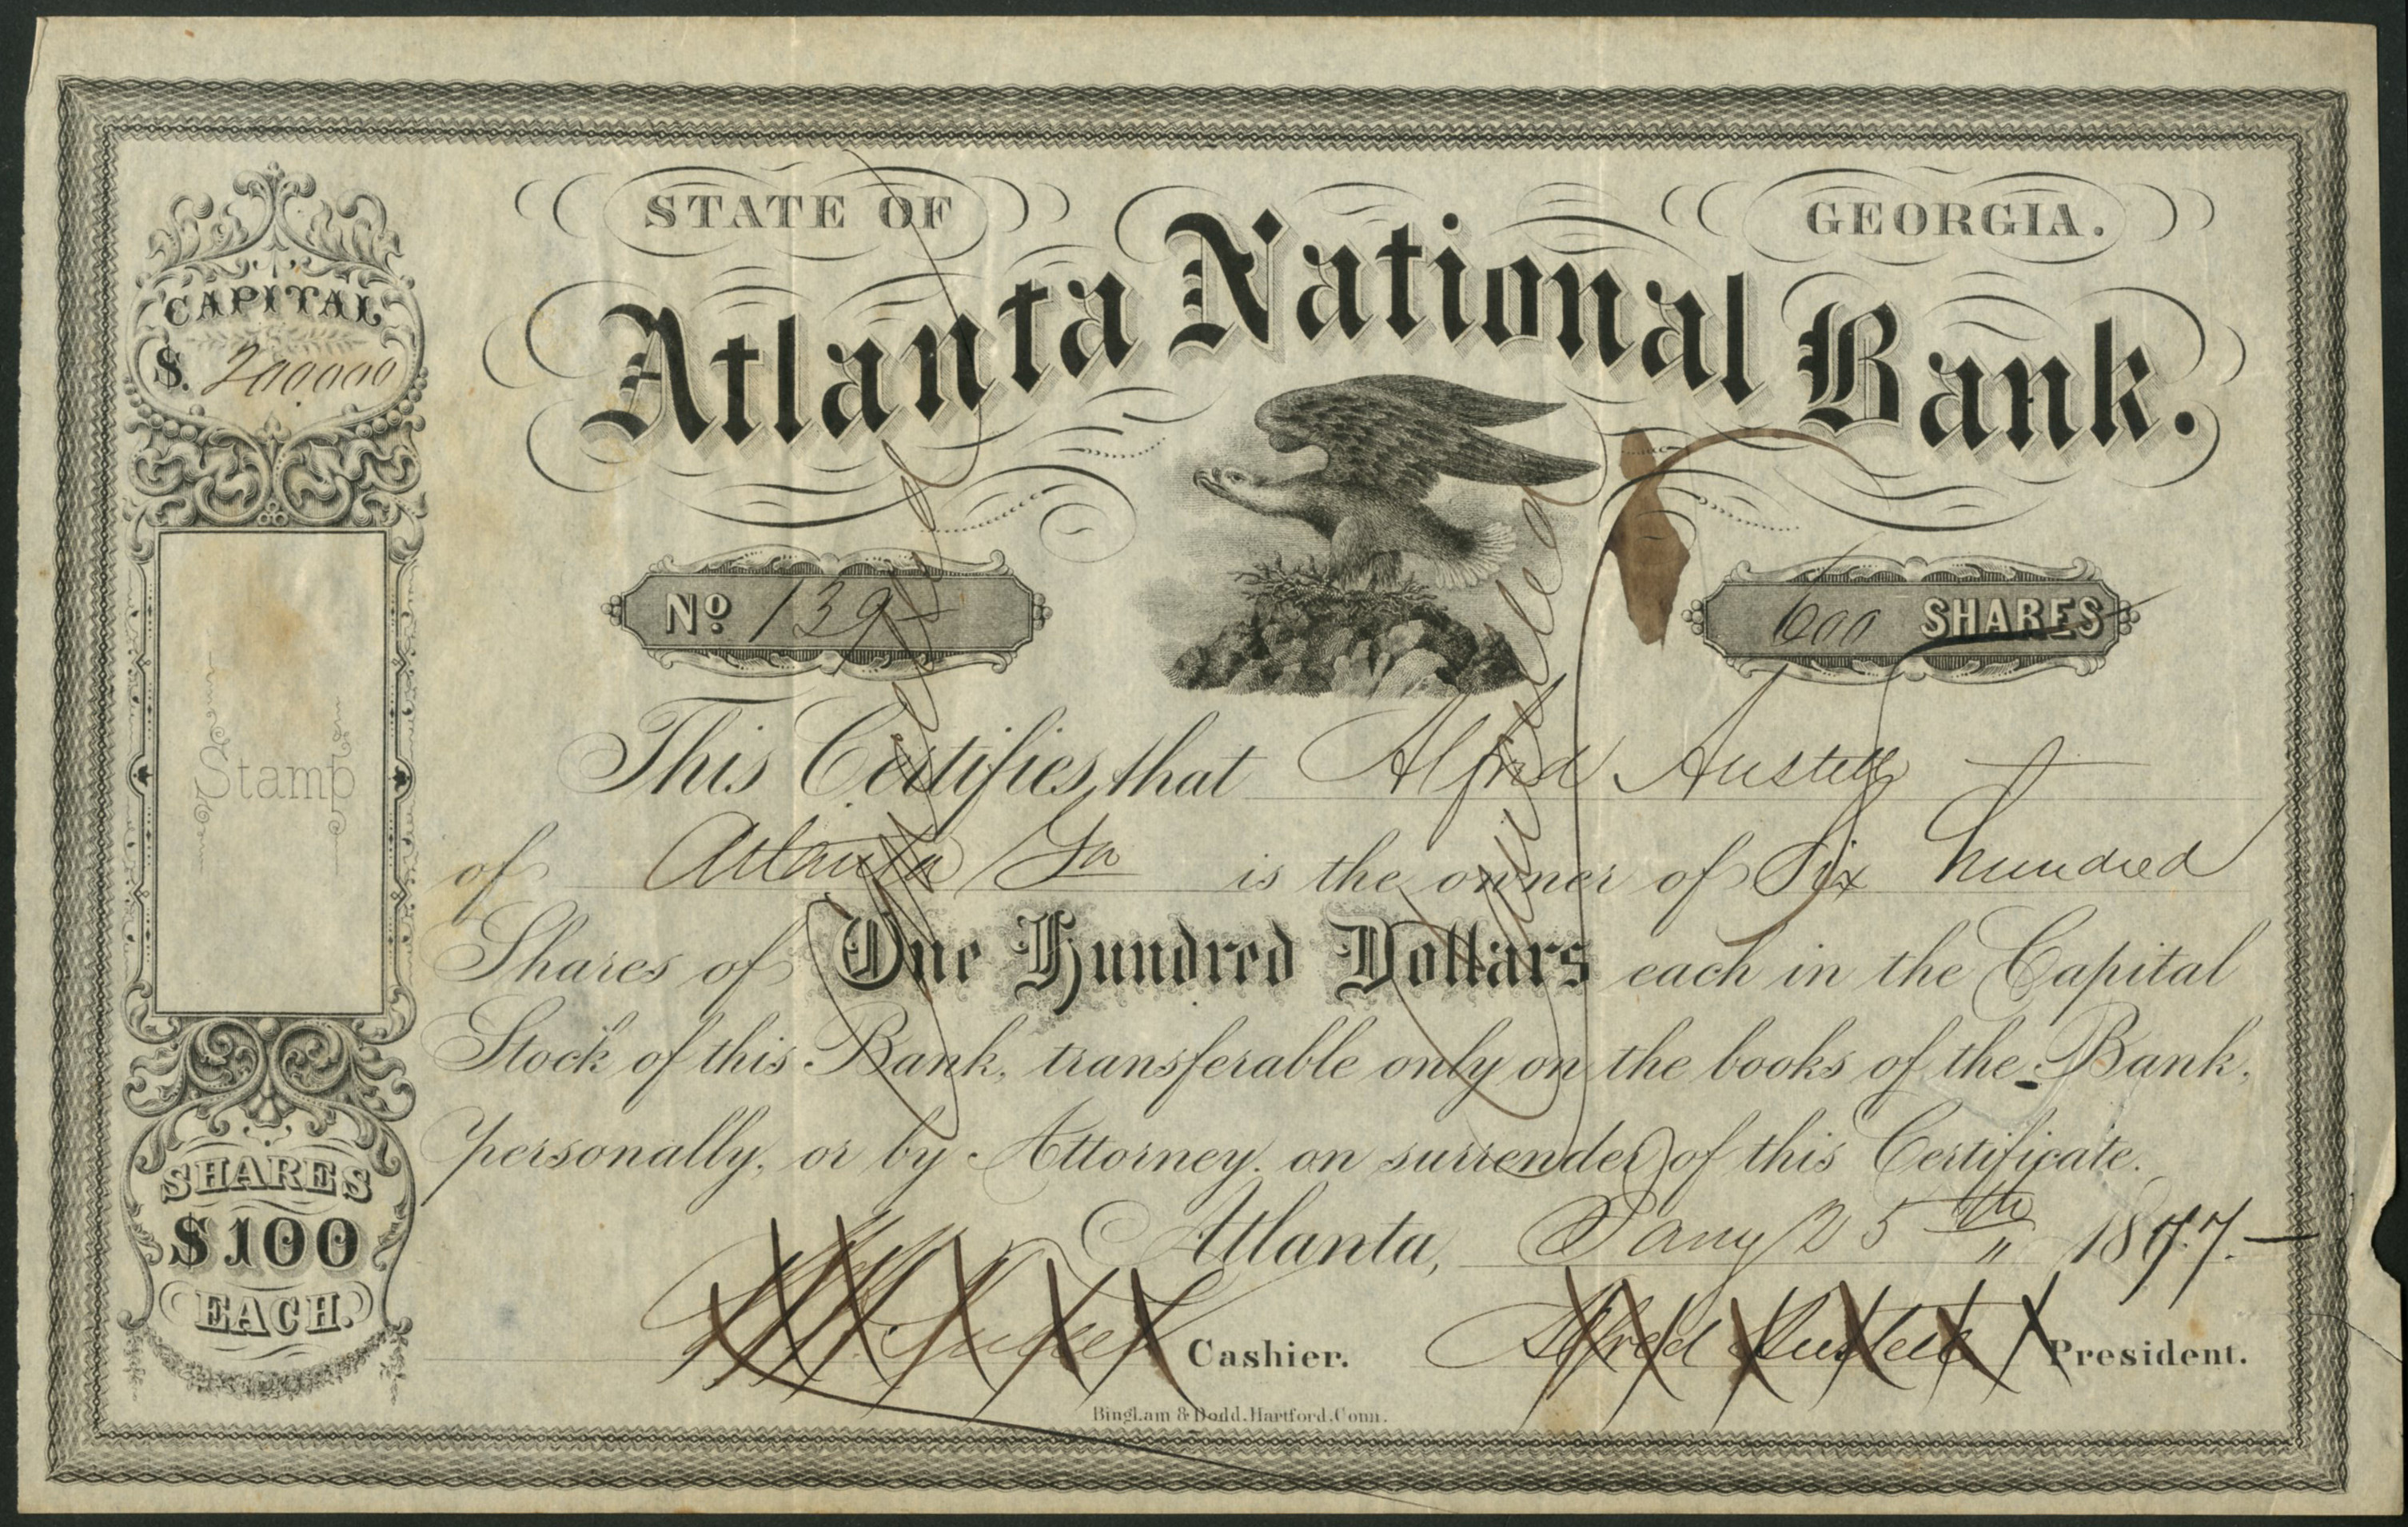 STATE OF GEORGIA.
Atlanta National Bank.
CAPITAL
$. 200000
No 139
600 SHARES
Stamp
This Certifies that Alfred Austell
of Atlanta Ga is the owner of Six hundred
Shares of One Hundred Dollars each in the Capital
Stock of this Bank, transferable only on the books of the Bank,
personally, or by Attorney, on surrender of this Certificate.
Atlanta, Jany 25th 1877.
SHARES
$100
EACH.
Cashier. Alfred Austell President.
Bingham & Dodd, Hartford, Conn.
Cancelled
Cancelled